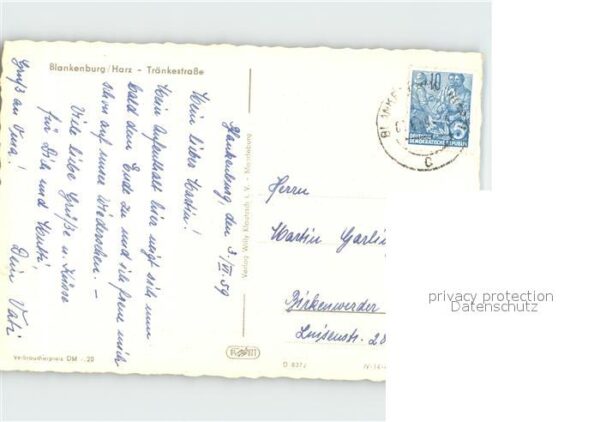 Blankenburg/Harz - Tränkestraße
Blankenburg, den 3/VII.59
Mein lieber Martin!
Mein Aufenthalt hier neigt sich nun
bald dem Ende zu und ich freue mich
schon auf unser Wiedersehen. -
Viele liebe Grüße u. Küsse
für Dich und Mutti,
Dein Vati
Gruß an Oma!
Verbraucherpreis DM -.20
Verlag Willy Klautzsch i. V. - Magdeburg
D 637/
IV-14-
BLANKENBURG
c
10
DEUTSCHE
DEMOKRATISCHE REPUBLIK
Herrn
Martin
Birkenwerder
Luisenstr. 20
privacy protection
Datenschutz